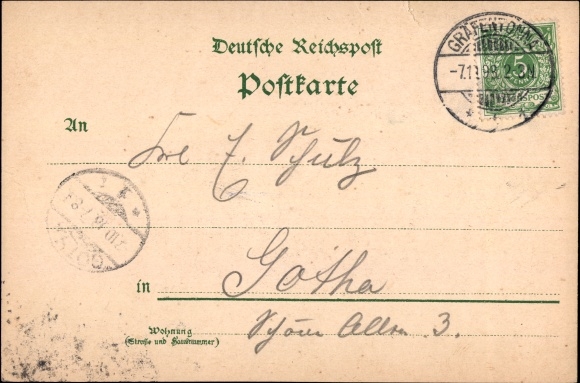 Deutsche Reichspost
Postkarte
GRÄFENTONNA
-7.11.99. 2-3N
5
REICHSPOST
An
Frl E. Schulz
GOTHA
in
Gotha
Wohnung
(Straße und Hausnummer)
Schöne Allee 3.